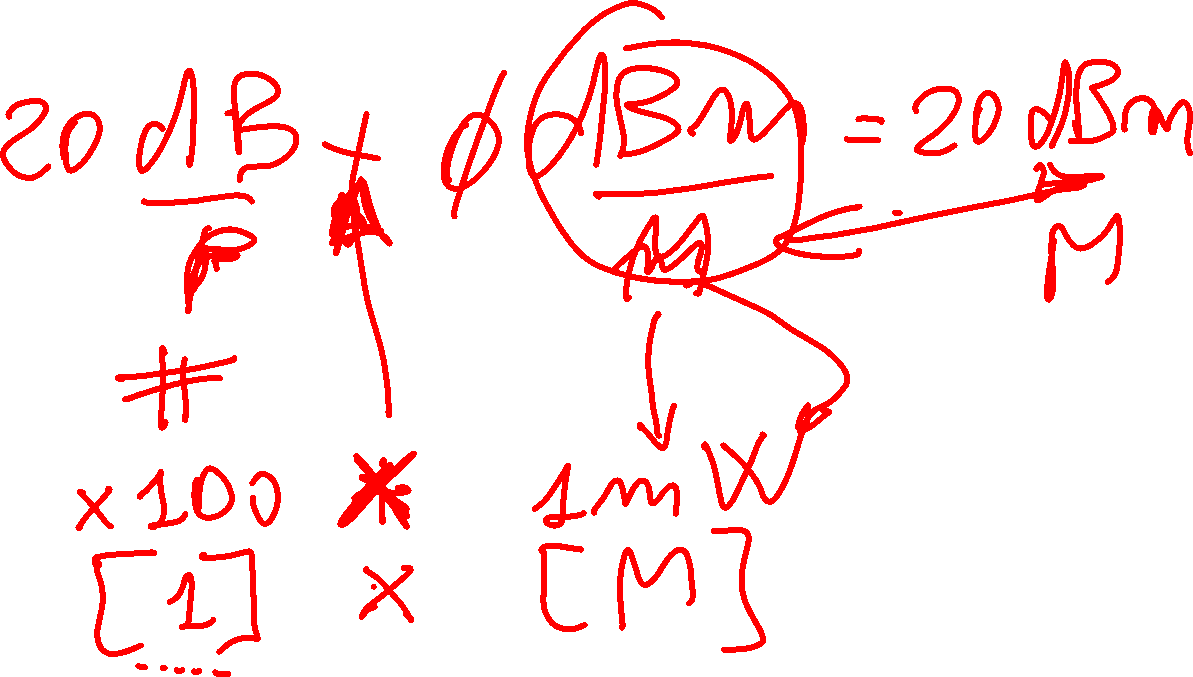 20 dB + 0 dBm = 20 dBm
P M M
#
×100 × 1mW
[1] × [M]